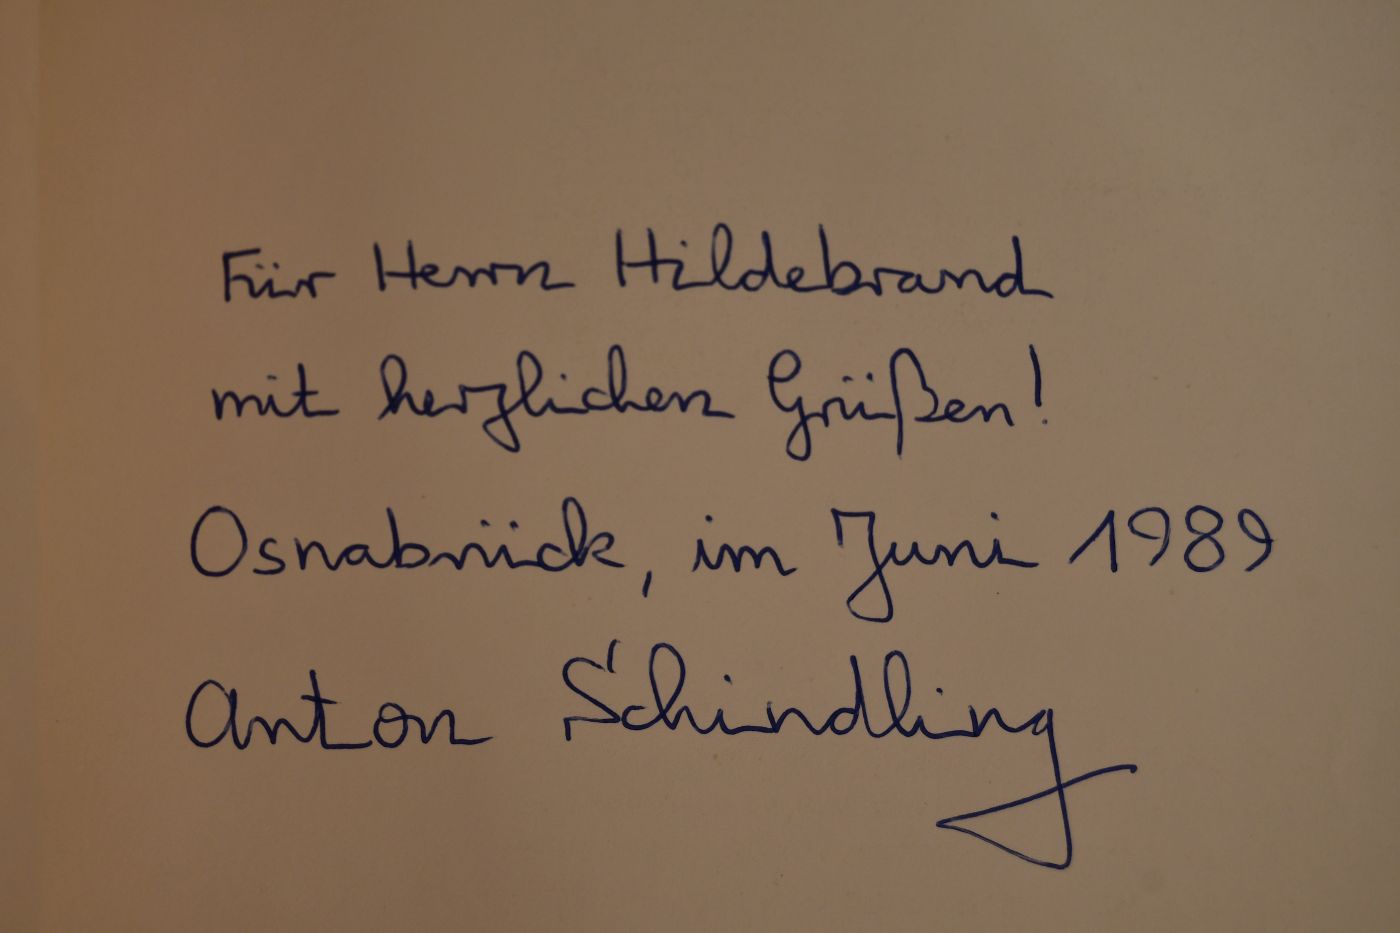 Für Herrn Hildebrand
mit herzlichen Grüßen!
Osnabrück, im Juni 1989
Anton Schindling